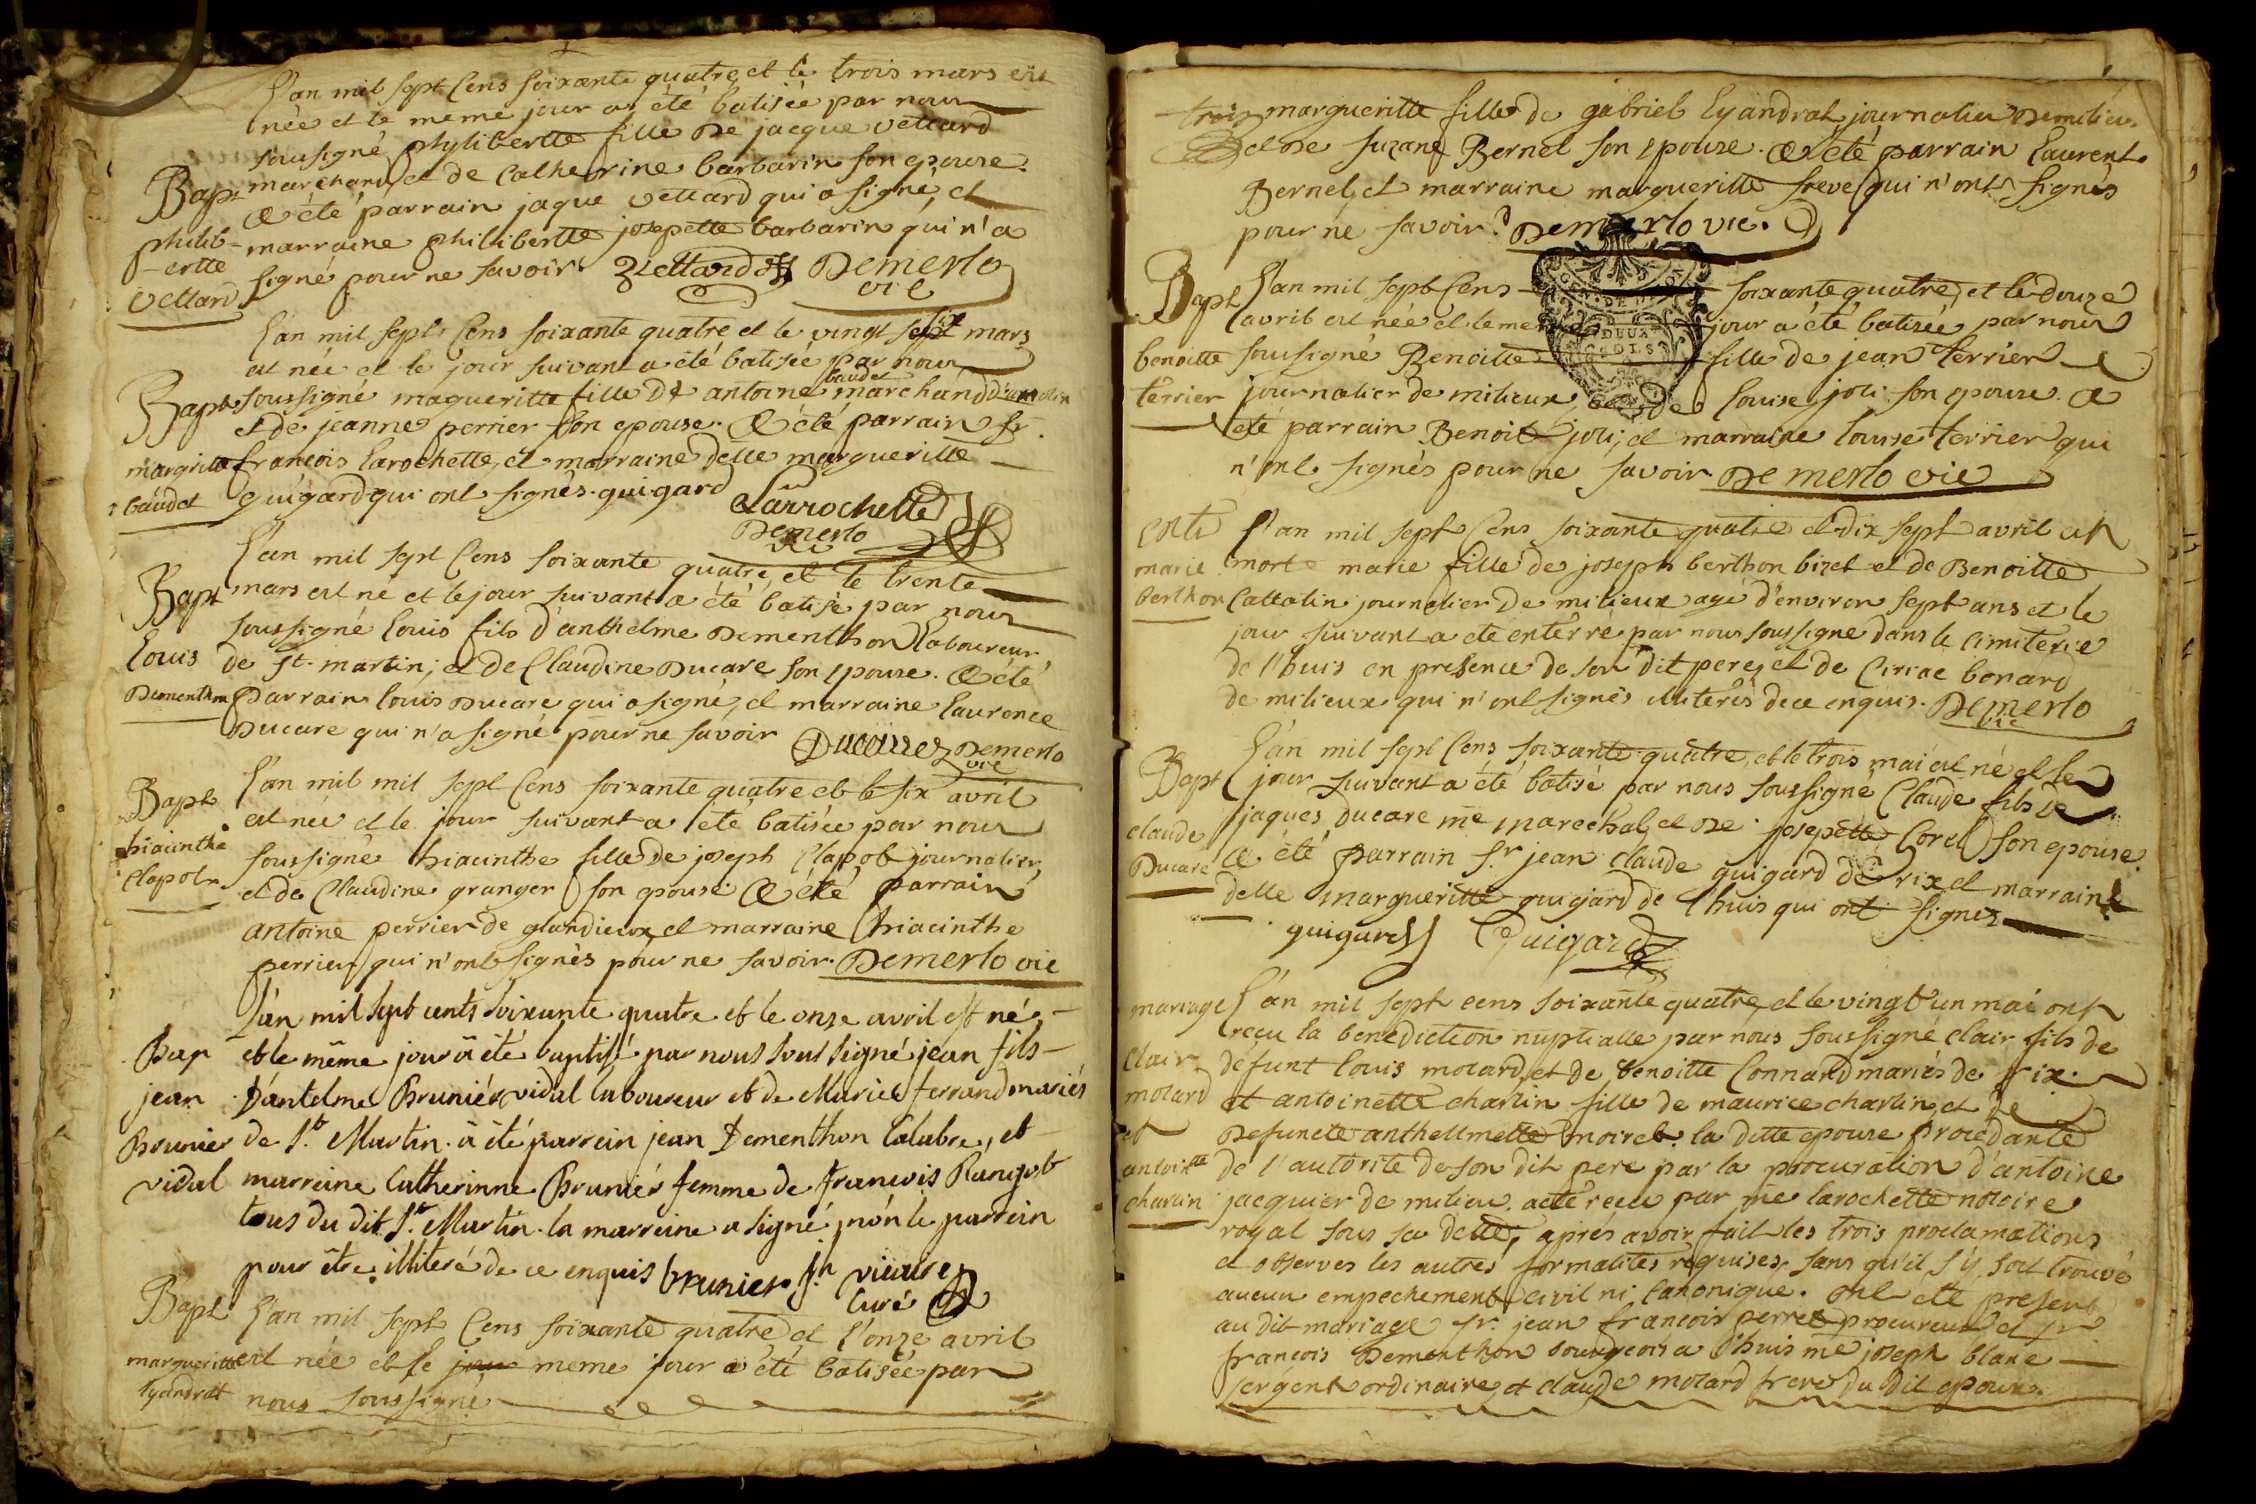 L'an mil sept Cens soixante quatre et le trois mars est
née et le meme jour a été batisée par nous
sousigné phylibertte fille De jacque vettard
Bapt marchand et de Catherine barbarin son epouse.
A été parrain jaque vettard qui a signé, et
philib- marraine philibertte josepette barbarin qui n'a
-ertte signé pour ne savoir. Vettard Demerlo
vettard vic
L'an mil sept Cens soixante quatre et le vingt sept mars
est née et le jour suivant a été batisée par nous
baudet
Bapt soussigné magueritte fille De antoine marchand
et de jeanne perrier son epouse. A été parrain sr.
margritte francois Larochette, et marraine delle margueritte
baudet guigard qui ont signés. guigard Larrochette
Demerlo
vic
L'an mil sept Cens soixante quatre, et le trente
Bapt mars est né et le jour suivant a été batisé par nous
soussigné Louis fils d'anthelme Dementhon Laboureur
Louis de st. martin, et de Claudine Ducare son epouse. A été
Dementhon parrain louis Ducare qui a signé, et marraine laurence
Ducare qui n'a signé pour ne savoir Ducarrez Demerlo
vic
Bapt L'an mil mil sept Cens soixante quatre et le six avril
est née et le jour suivant a été batisée par nous
hiacinthe soussigné hiacinthe fille de joseph Clapot journalier,
Clapot et de Claudine granger son epouse A été parrain
antoine perrier de glandieux, et marraine hiacinthe
perrier qui n'ont signés pour ne savoir. Demerlo vic
L'an mil sept cents soixante quatre et le onze avril est né
Bap et le même jour a été baptisé par nous sous signé jean fils
jean D'antelme Brunier vidal laboureur et de Marie ferrand mariés
Brunier de St. Martin. a été parrein jean Dementhon Calabre, et
vidal marreine Catherinne Brunier femme de francois Rangot
tous du dit St. Martin. la marreine a signé, non le parrein
pour être illiteré de ce enquis brunier vicaire
Curé
Bapt L'an mil sept Cens soixante quatre, et l'onze avril
margueritte est née et le jour meme jour a été batisée par
lyandrat nous soussigné
trois margueritte fille de gabriel Lyandrat journalier De milieu.
et De suzane Bernel son epouse. A été parrain Laurent
Bernel, et marraine margueritte freve qui n'ont signés
pour ne savoir. Demerlo vic.
Bapt L'an mil sept Cens soixante quatre, et le douze
avril est née et le meme jour a été batisée par nous
benoitte soussigné Benoitte fille de jean terrier
terrier journalier de milieux, et de Louise joli son epouse. A
été parrain Benoit joli, et marraine louise terrier qui
n'ont signés pour ne savoir. Demerlo vic
DEUX
SOLS
L'an mil sept Cens soixante quatre et dix sept avril est
marie morte marie fille de joseph berthon bizet et de Benoitte
berthon Cattatin journalier De milieux agé d'environ sept ans et le
jour suivant a été entérre par nous soussigné dans le cimiterie
de l'huis en presence de son dit pere, et de Ciriac bonard
de milieux qui n'ont signés illiterés de ce enquis. Demerlo
vic
L'an mil sept Cens soixante quatre, et le trois mai est né et le
Bapt jour suivant a été batisé par nous soussigné Claude fils de
claude jaques Ducare me marechal, et De josepette Corel son epouse
Ducare A été parrain sr. jean claude guigard de rix et marraine
delle margueritte guigard de l'huis qui ont signez
guigard Guigard
mariage L'an mil sept cens soixante quatre, et le vingt un mai ont
recu la benediction nuptialle par nous soussigné clair fils de
Clair defunt Louis motard, et de benoitte Connard mariés de rix.
motard et antoinette charlin fille de maurice charlin, et de
et Defuncte anthellmette moiret. la dette epouse procedante
antointte de l'autorité de son dit pere par la procuration d'antoine
charlin jacquier de milieu. acte recu par me larochette notoire
royal sous sa dette, apres avoir fait les trois proclamations
et observes les autres formalités requises, sans qu'il s'y soit trouvé
aucun empechement civil ni canonique. ont été present
au dit mariage sr. jean francois perret procureur et sr
francois Dementhon bourgeois a l'huis me joseph blanc
sergent ordinaire, et claude motard frere du dit epoux.